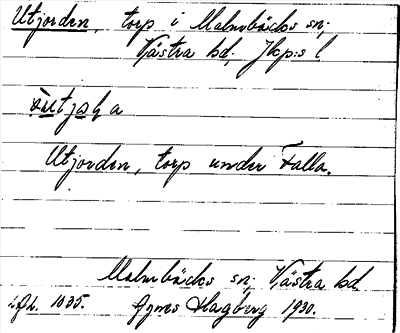 Utjorden, torp i Malmbäcks sn;
Västra hd; Jkp:s l
Utjorden, torp under Falla.
Malmbäcks sn; Västra hd
1035. Agnes Hagberg 1930.